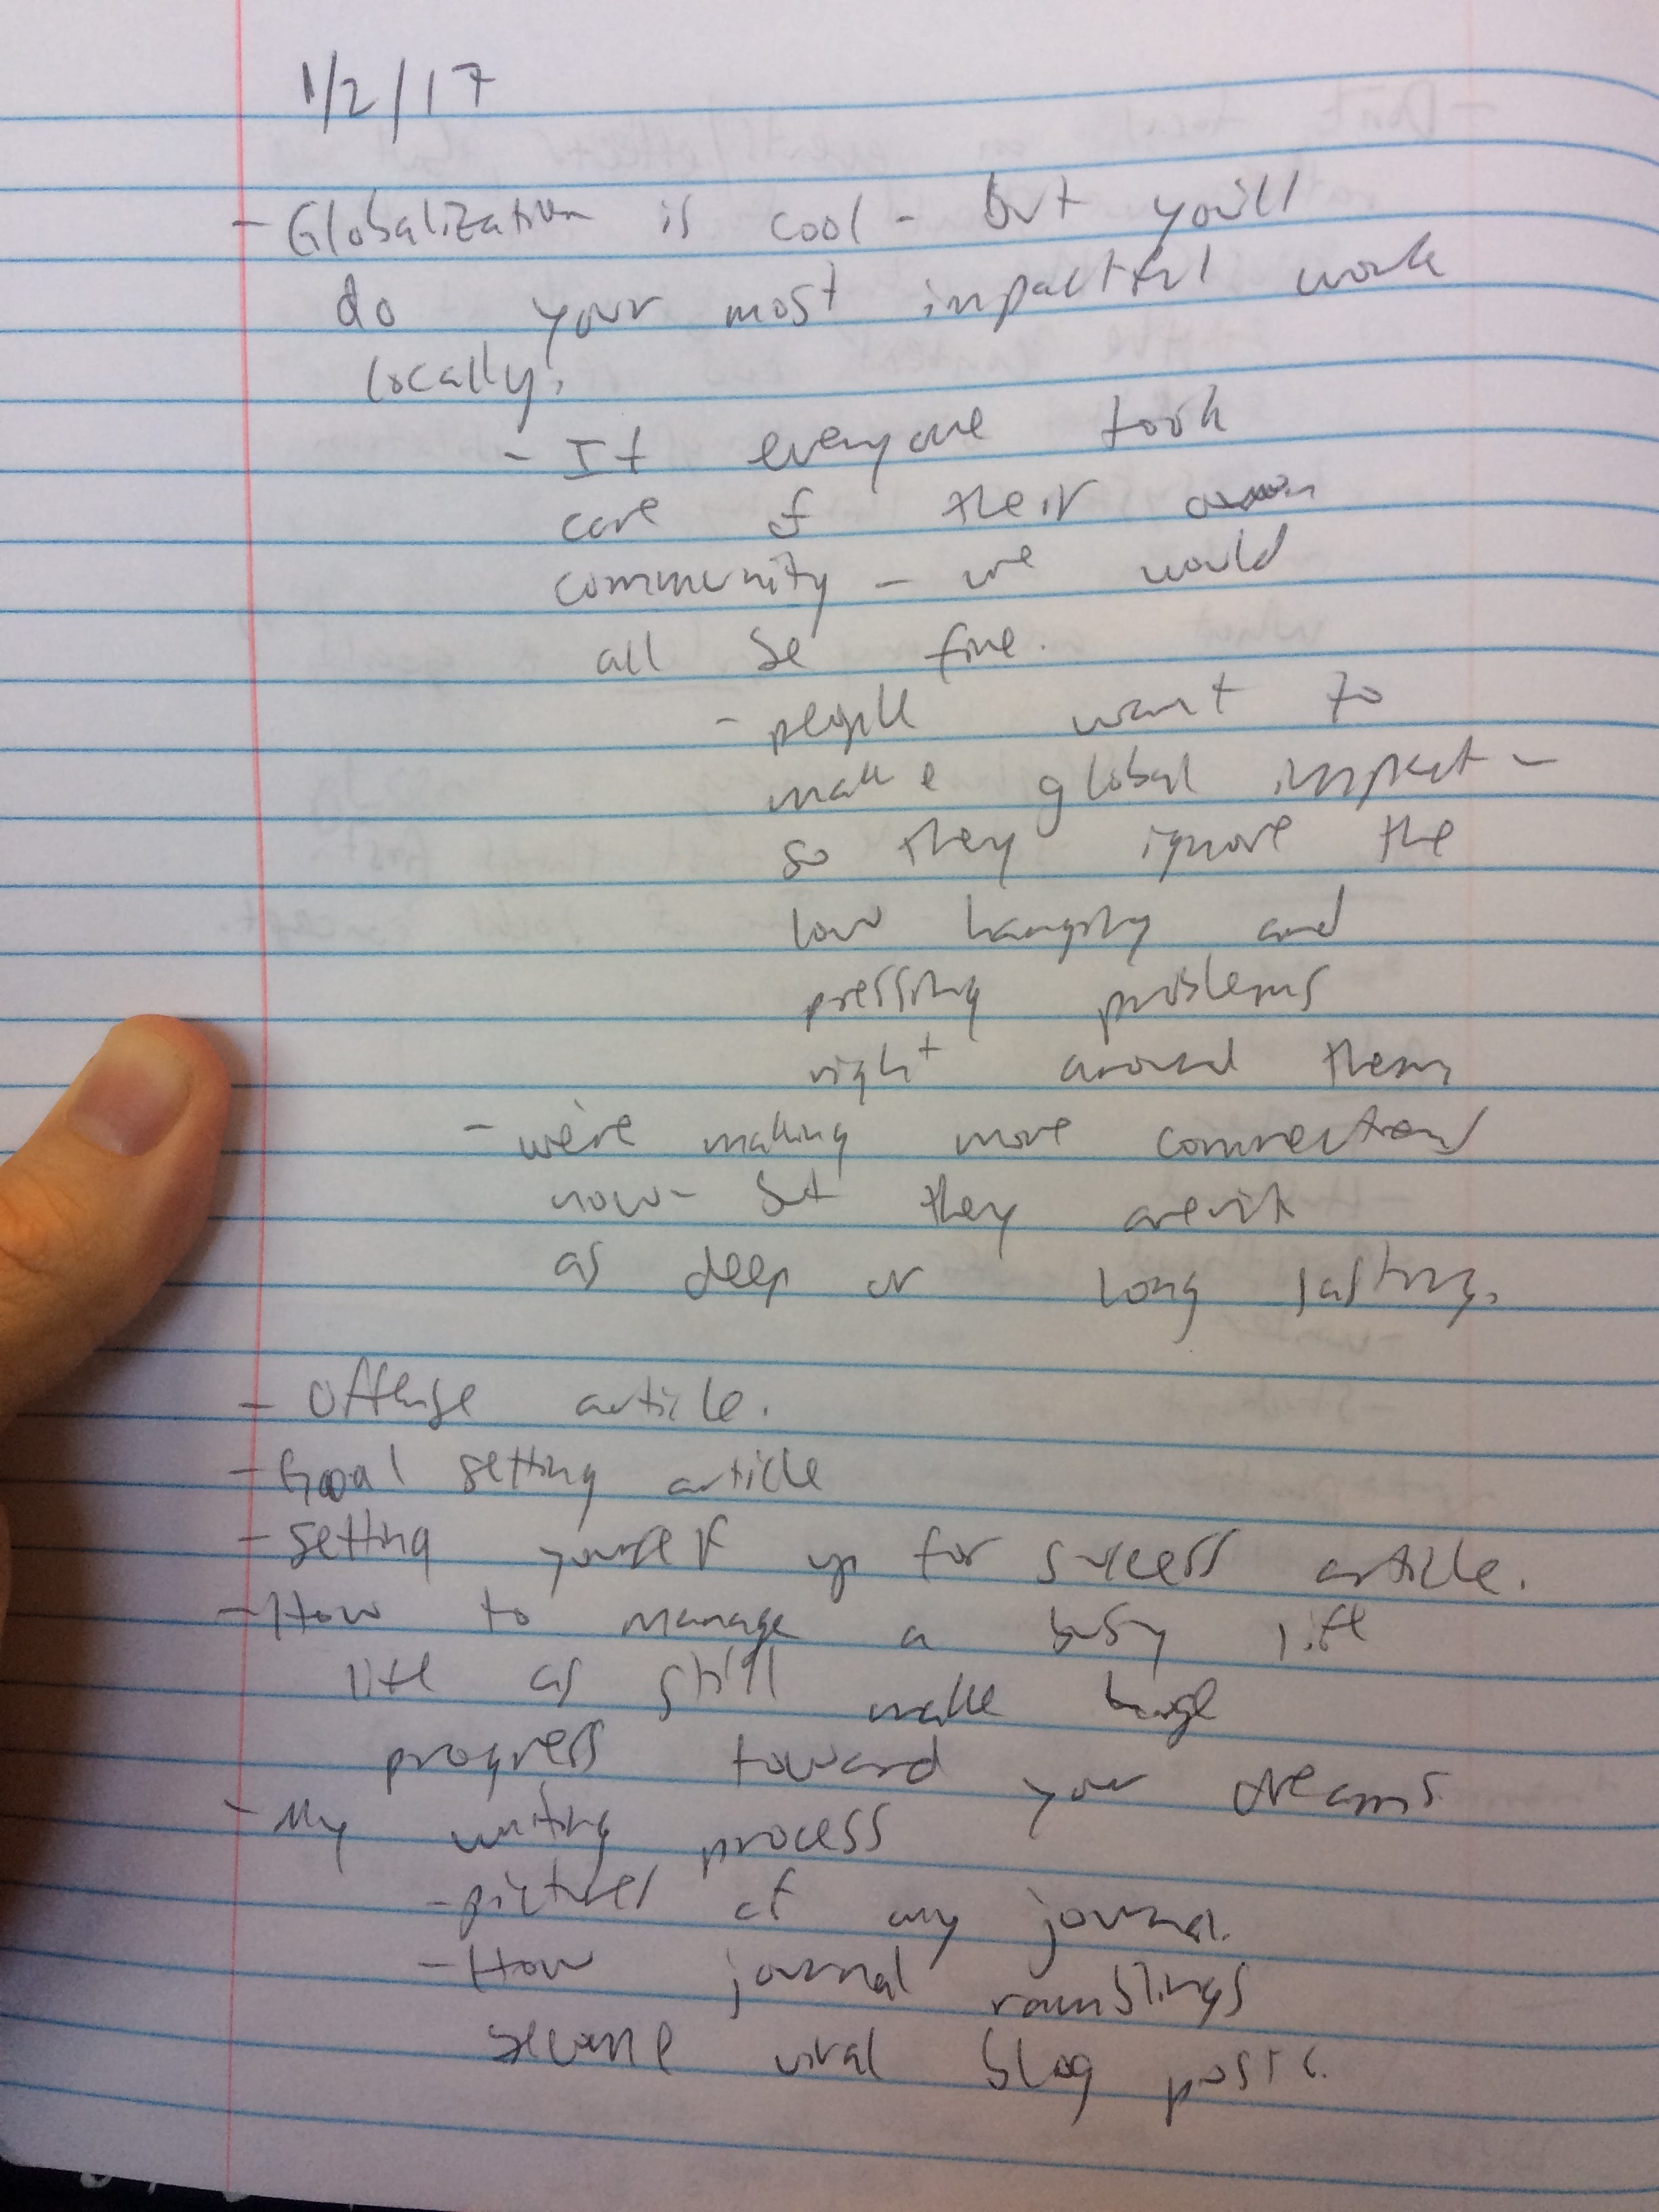 1/2/17
- Globalization is cool - but you'll
do your most impactful work
locally.
- If everyone took
care of their own
community - we would
all be fine.
- people want to
make global impact -
so they ignore the
low hanging and
pressing problems
right around them
- we're making more connections
now - but they aren't
as deep or long lasting.
- Offense article.
- Goal setting article
- Setting yourself up for success article.
- How to manage a busy life
life as still make huge
progress toward your dreams.
- My writing process
- pictures of my journal.
- How journal ramblings
become viral blog posts.